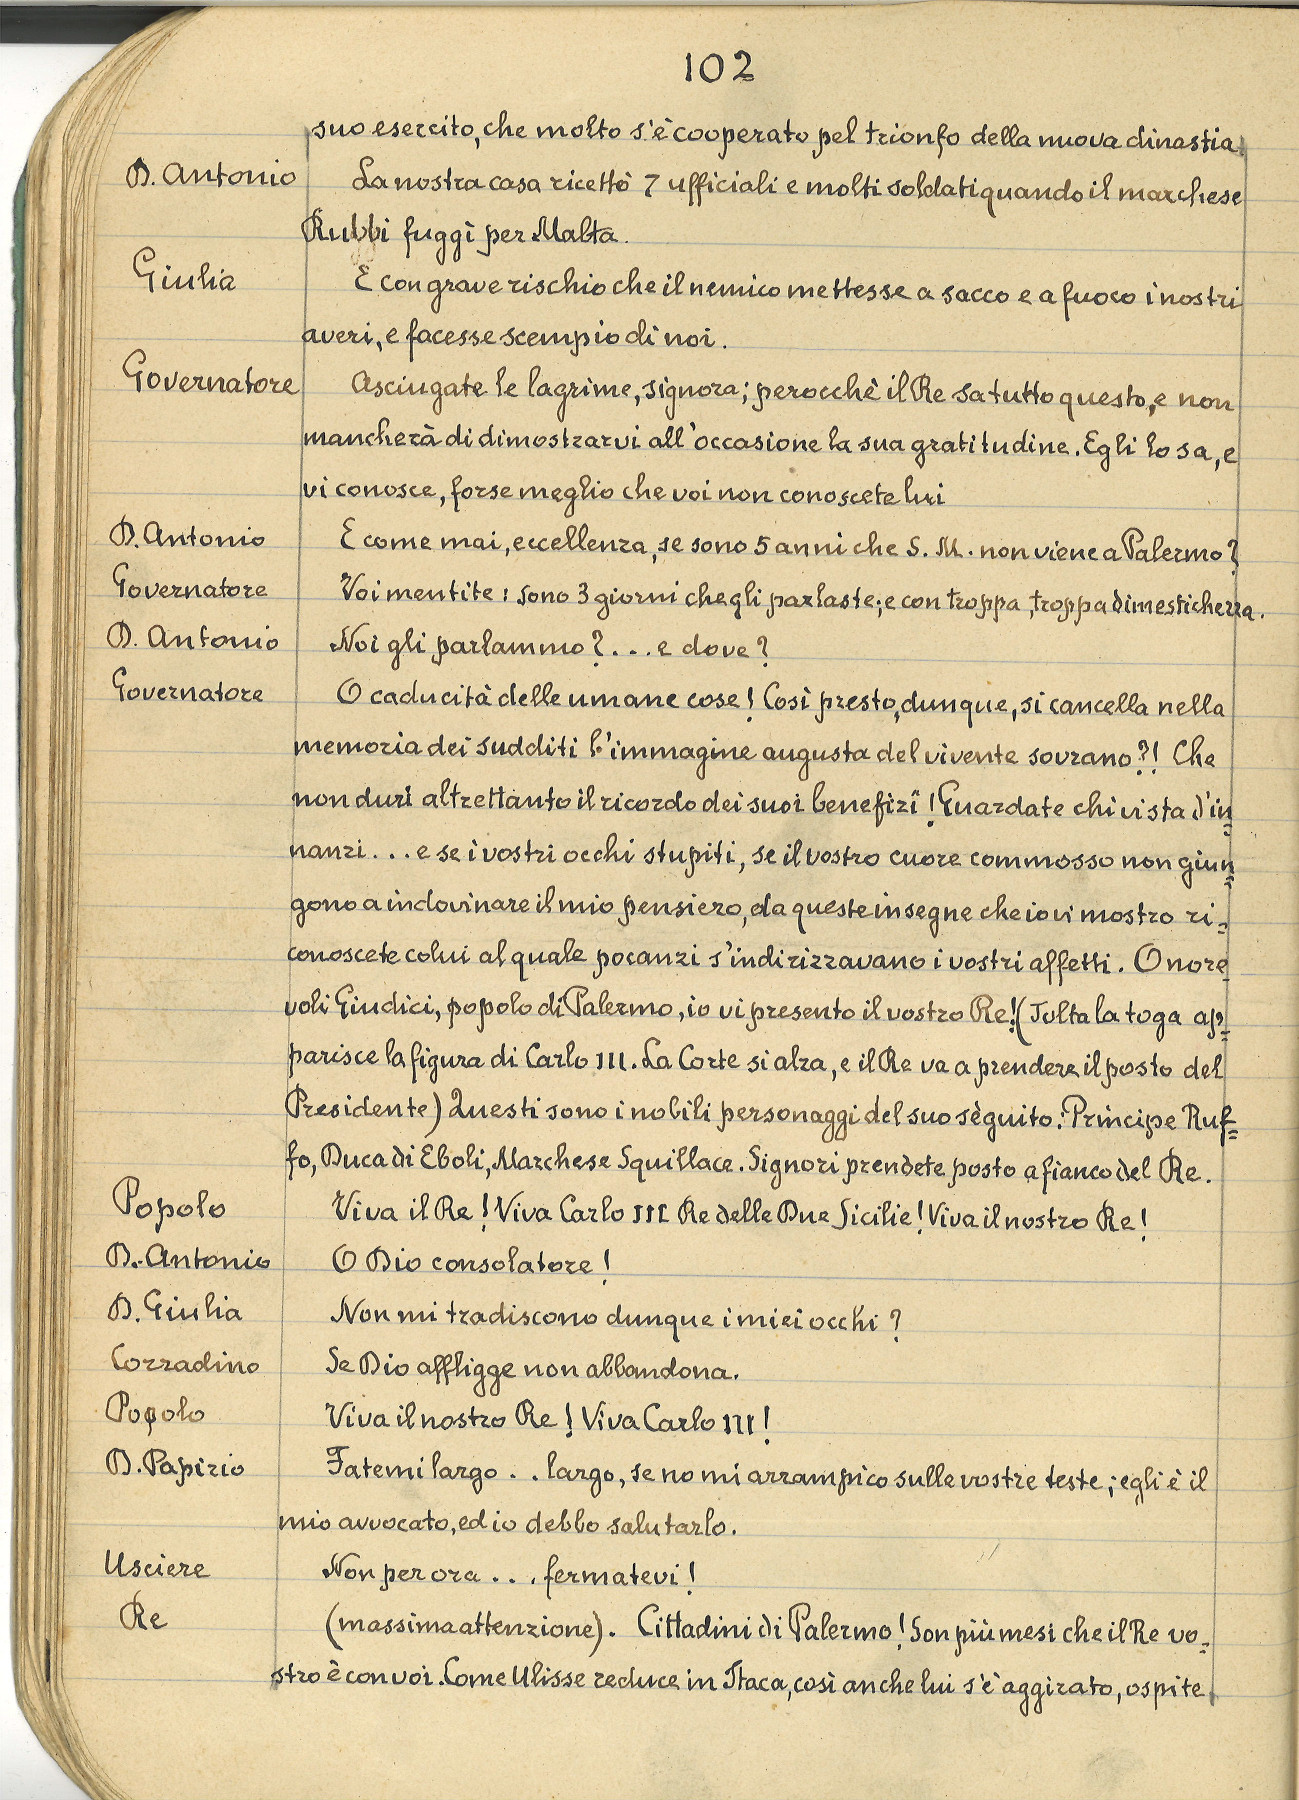 102
suo esercito, che molto s'è cooperato pel trionfo della nuova dinastia.
D. Antonio La nostra casa ricettò 7 ufficiali e molti soldati quando il marchese
Rubbi fuggì per Malta.
Giulia E con grave rischio che il nemico mettesse a sacco e a fuoco i nostri
averi, e facesse scempio di noi.
Governatore Asciugate le lagrime, signora; perocchè il Re sa tutto questo, e non
mancherà di dimostrarvi all'occasione la sua gratitudine. Egli lo sa, e
vi conosce, forse meglio che voi non conoscete lui
D. Antonio E come mai, eccellenza, se sono 5 anni che S. M. non viene a Palermo?
Governatore Voi mentite: sono 3 giorni che gli parlaste; e con troppa, troppa dimestichezza.
D. Antonio Noi gli parlammo?... e dove?
Governatore O caducità delle umane cose! Così presto, dunque, si cancella nella
memoria dei sudditi l'immagine augusta del vivente sovrano?! Che
non duri altrettanto il ricordo dei suoi benefizî! Guardate chi vi sta d'in=
nanzi... e se i vostri occhi stupiti, se il vostro cuore commosso non giun=
gono a indovinare il mio pensiero, da queste insegne che io vi mostro ri=
conoscete colui al quale pocanzi s'indirizzavano i vostri affetti. Onore
voli Giudici, popolo di Palermo, io vi presento il vostro Re! (Tolta la toga ap=
parisce la figura di Carlo III. La Corte si alza, e il Re va a prendere il posto del
Presidente) Questi sono i nobili personaggi del suo sèguito: Principe Ruf=
fo, Duca di Eboli, Marchese Squillace. Signori prendete posto a fianco del Re.
Popolo Viva il Re! Viva Carlo III Re delle Due Sicilie! Viva il nostro Re!
D. Antonio O Dio consolatore!
D. Giulia Non mi tradiscono dunque i miei occhi?
Corradino Se Dio affligge non abbandona.
Popolo Viva il nostro Re! Viva Carlo III!
D. Papirio Fatemi largo . . largo, se no mi arrampico sulle vostre teste; egli è il
mio avvocato, ed io debbo salutarlo.
Usciere Non per ora... fermatevi!
Re (massima attenzione). Cittadini di Palermo! Son più mesi che il Re vo=
stro è con voi. Come Ulisse reduce in Itaca, così anche lui s'è aggirato, ospite